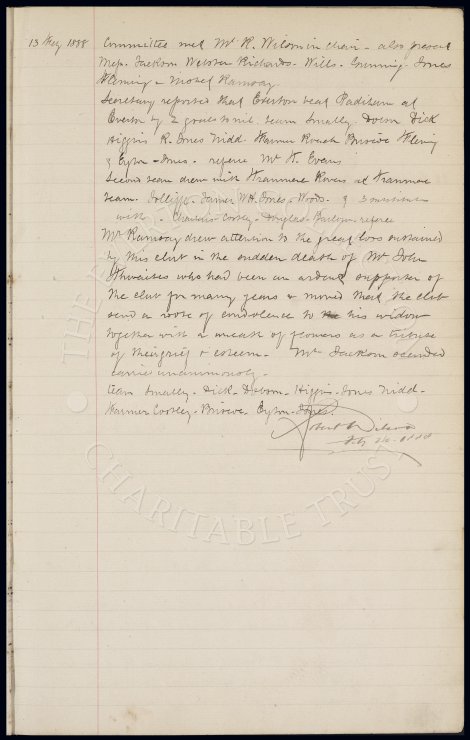 13 Feby 1888 Committee met Mr R. Wilson in Chair - also present
Mess. Jackson Webster Richards - Wills - Gunning - Jones
Fleming - Ramsay.
Secretary reported that Everton beat Padiham at
Everton by 2 goals to nil. team Smalley - Dobson Dick
Higgins R. Jones Nidd. Farmer Roach Briscoe Fleming
& Eyton-Jones. referee Mr W. Evans
Second team drew with Tranmere Rovers at Tranmere
team. Jolliffe. W.H. Jones - Woods & 3 substitutes
with Corley - Douglas - referee
Mr Ramsay drew attention to the great loss sustained
by this club in the sudden death of Mr John
Thwaites who had been an ardent supporter of
the club for many years & moved that the club
send a vote of condolence to his widow
together with a wreath of flowers as a tribute
of their grief & esteem. Mr Jackson seconded
carried unanimously.
Team Smalley. Dick. Dobson. Higgins. Jones Nidd.
Farmer Corley. Briscoe. Eyton-Jones.
Robert Wilson
THE CHARITABLE TRUST